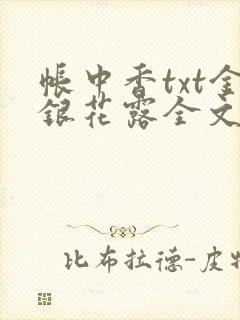 帳中香txt金
銀花露全文
比布拉德-皮特